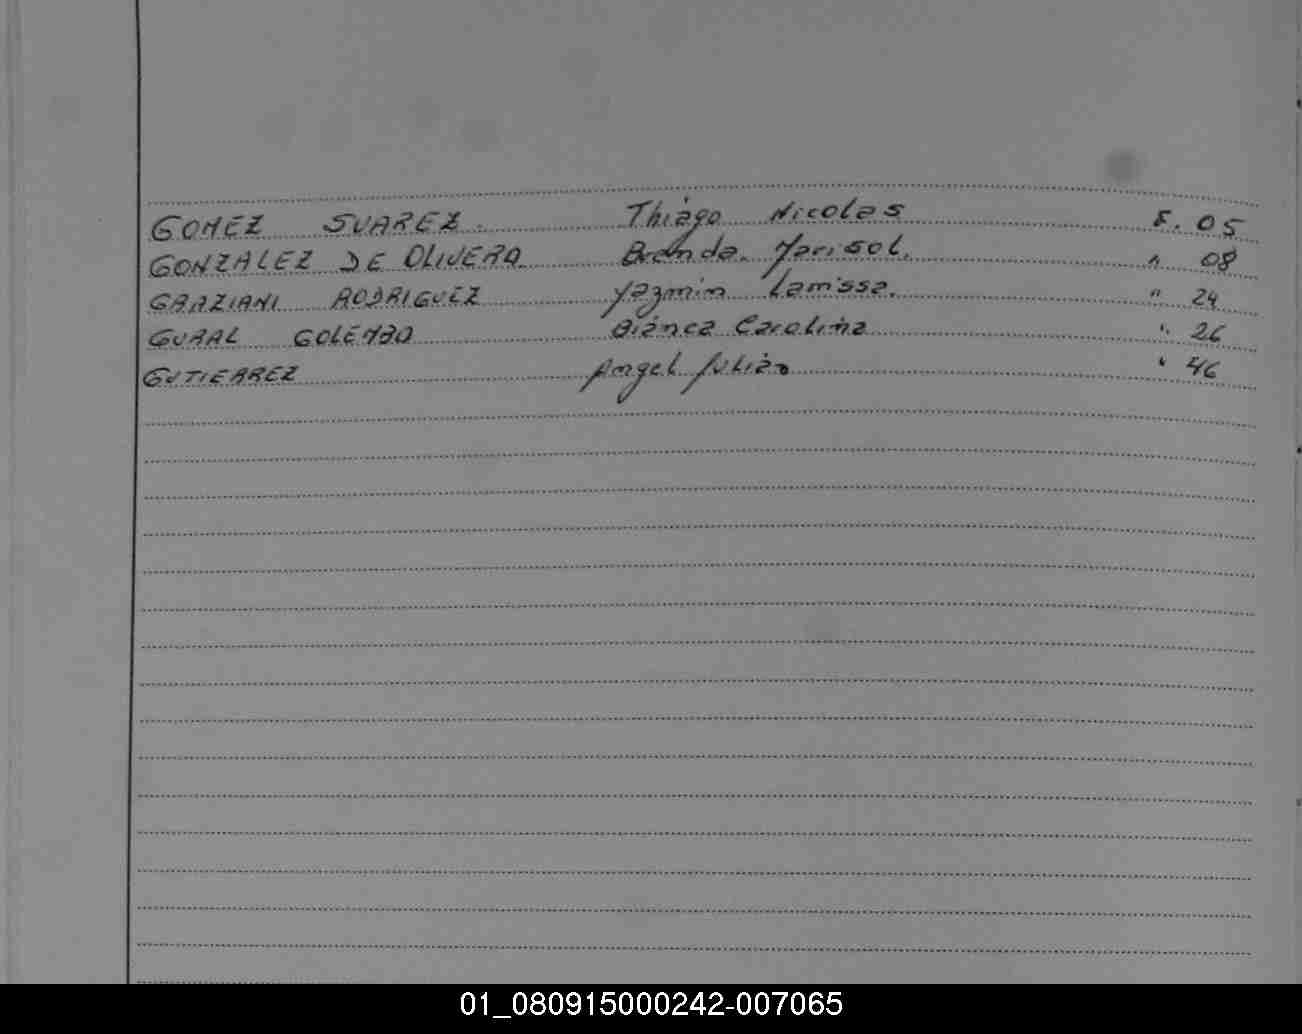 GOMEZ SUAREZ. Thiago Nicolas F. 05
GONZALEZ DE OLIVERA Brenda Marisol. " 08
GRAZIANI RODRIGUEZ Yazmin Larissa. " 24
GURAL GOLEMBO Bianca Carolina " 26
GUTIERREZ Angel Julian " 46
01_080915000242-007065